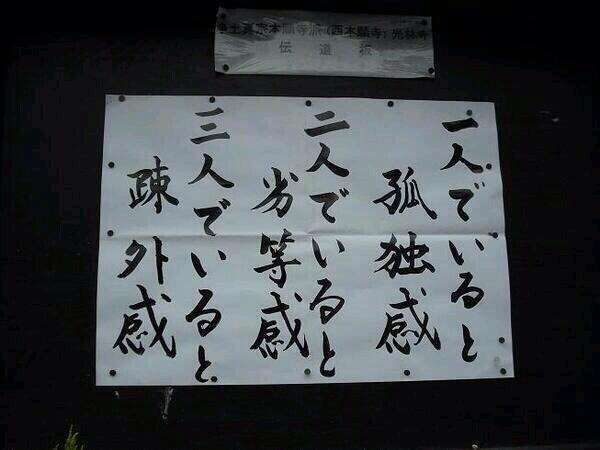 浄土真宗本願寺派(西本願寺)光林寺
伝道板
一人でいると
孤独感
二人でいると
劣等感
三人でいると
疎外感